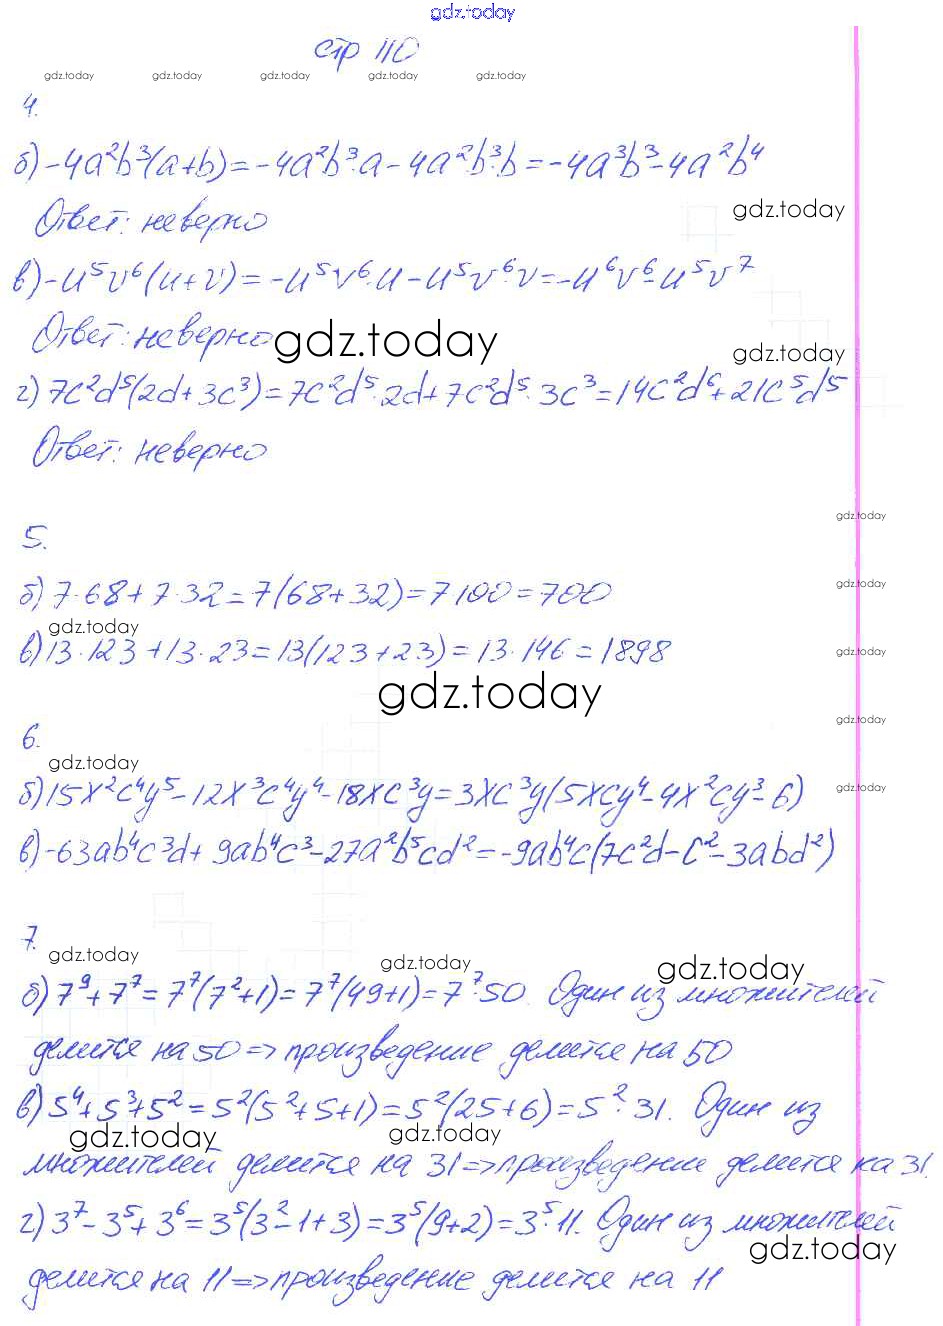 gdz.today
стр 110
gdz.today gdz.today gdz.today gdz.today gdz.today
4.
б) -4a²b³(a+b) = -4a²b³·a - 4a²b³·b = -4a³b³ - 4a²b⁴
gdz.today
Ответ: неверно
в) -u⁵v⁶(u+v) = -u⁵v⁶·u - u⁵v⁶·v = -u⁶v⁶ - u⁵v⁷
Ответ: неверно
gdz.today
gdz.today
г) 7c²d⁵(2d+3c³) = 7c²d⁵·2d + 7c²d⁵·3c³ = 14c²d⁶ + 21c⁵d⁵
Ответ: неверно
gdz.today
5.
gdz.today
б) 7·68 + 7·32 = 7(68+32) = 7·100 = 700
gdz.today
gdz.today
в) 13·123 + 13·23 = 13(123+23) = 13·146 = 1898
gdz.today
gdz.today
6.
gdz.today
gdz.today
б) 15x²c⁴y⁵ - 12x³c⁴y⁴ - 18xc³y = 3xc³y(5xcy⁴ - 4x²cy³ - 6)
в) -63ab⁴c³d + 9ab⁴c³ - 27a²b⁵cd² = -9ab⁴c(7c²d - c² - 3abd²)
7.
gdz.today gdz.today gdz.today
б) 7⁹+7⁷ = 7⁷(7²+1) = 7⁷(49+1) = 7⁷·50. Один из множителей
делится на 50 => произведение делится на 50
в) 5⁴+5³+5² = 5²(5²+5+1) = 5²(25+6) = 5²·31. Один из
gdz.today gdz.today
множителей делится на 31 => произведение делится на 31.
г) 3⁷-3⁵+3⁶ = 3⁵(3²-1+3) = 3⁵(9+2) = 3⁵·11. Один из множителей
gdz.today
делится на 11 => произведение делится на 11